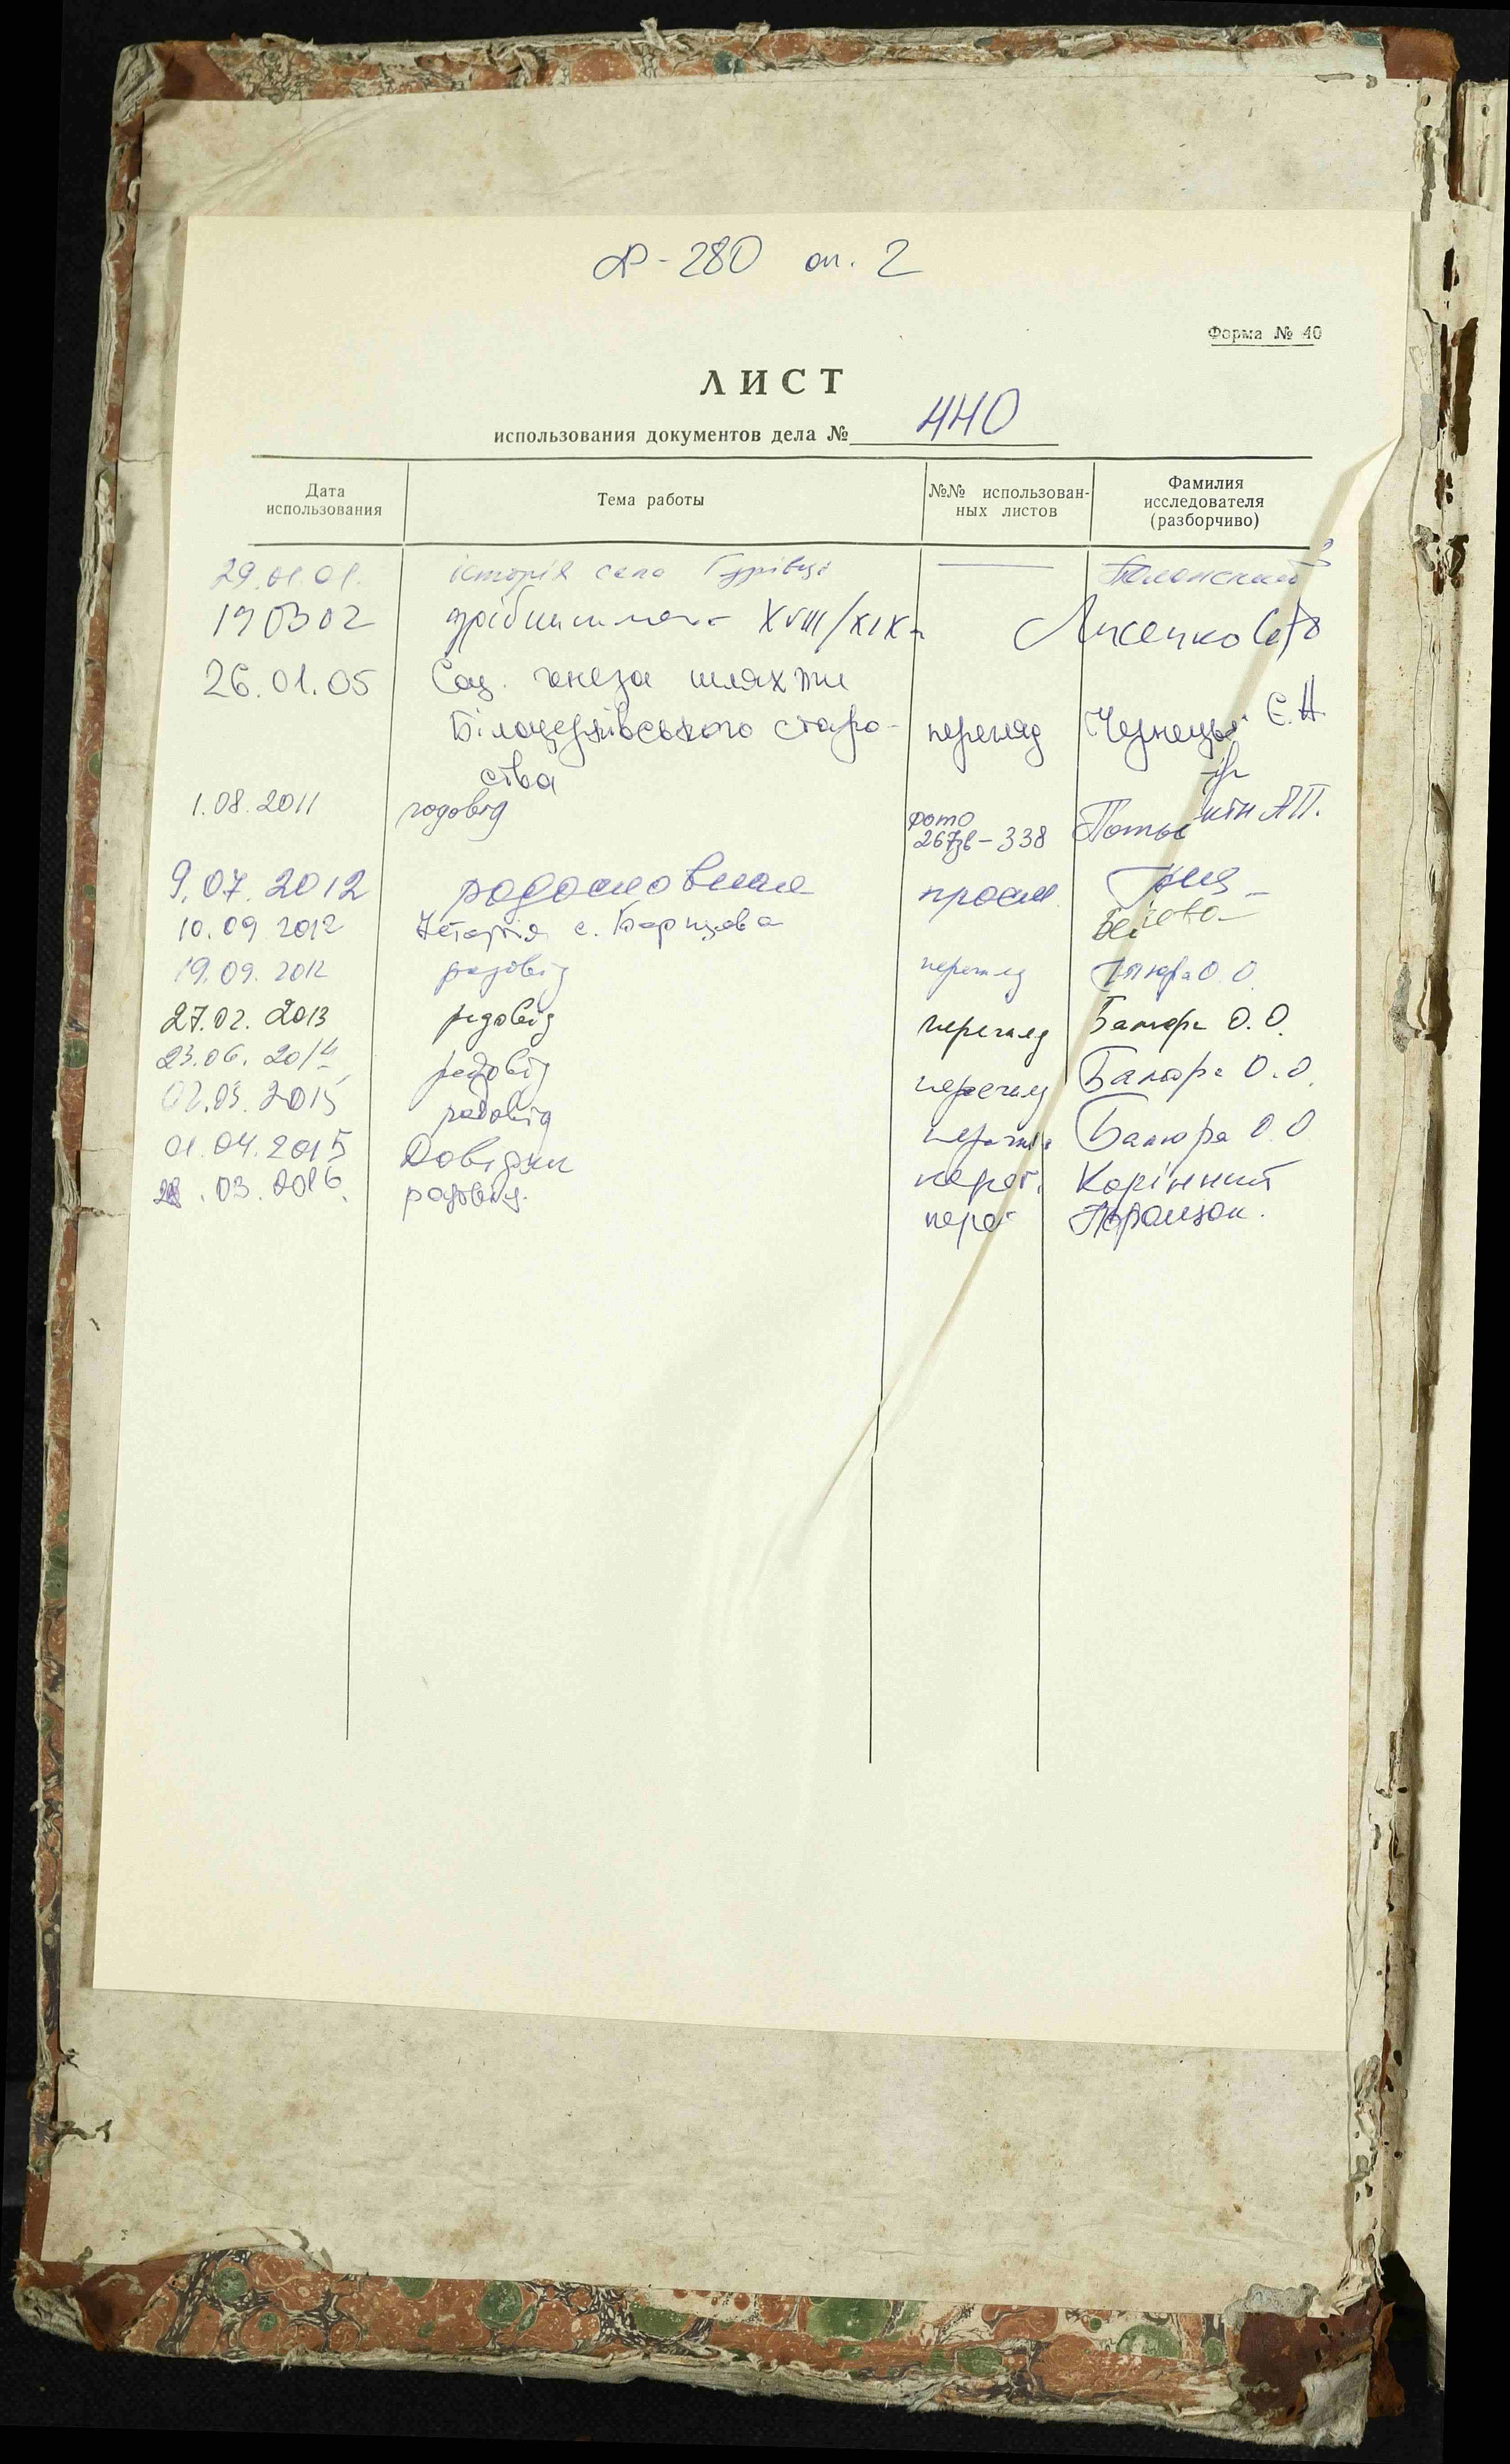 Ф-280 оп. 2
Форма № 40
ЛИСТ
использования документов дела № 440
Дата использования
Тема работы
№№ использован-
ных листов
Фамилия
исследователя
(разборчиво)
29.01.01. історія села
190302 XVIII/XIX Лисенко
26.01.05 Соц. генеза шляхти
Білоцерківського старо- перегляд Чернецький Є.А.
ства
1.08.2011 родовід фото
267зв-338
9.07.2012 родословная просм.
10.09.2012 Історія с.
19.09.2012 родовід перегляд О.О.
27.02.2013 родовід перегляд Банюра О.О.
23.06.2014 родовід перегляд Банюра О.О.
02.03.2015 родовід перегляд Банюра О.О
01.04.2015 Довідки перег. Корінний
28.03.2016. родовід. перег